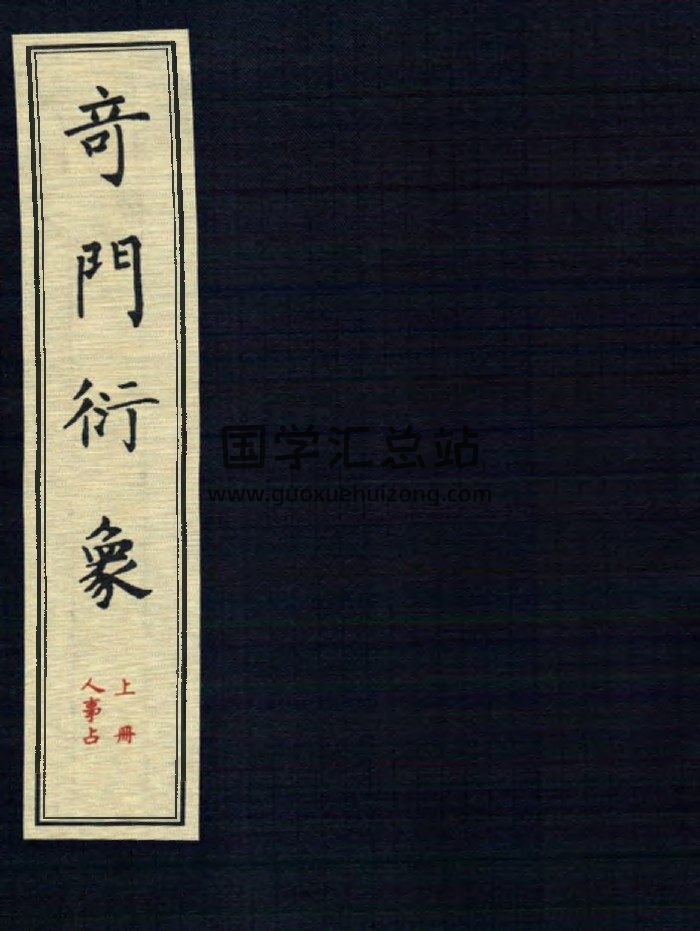 奇門衍象
上冊
人事占
国学汇总站
www.guoxuehuizong.com